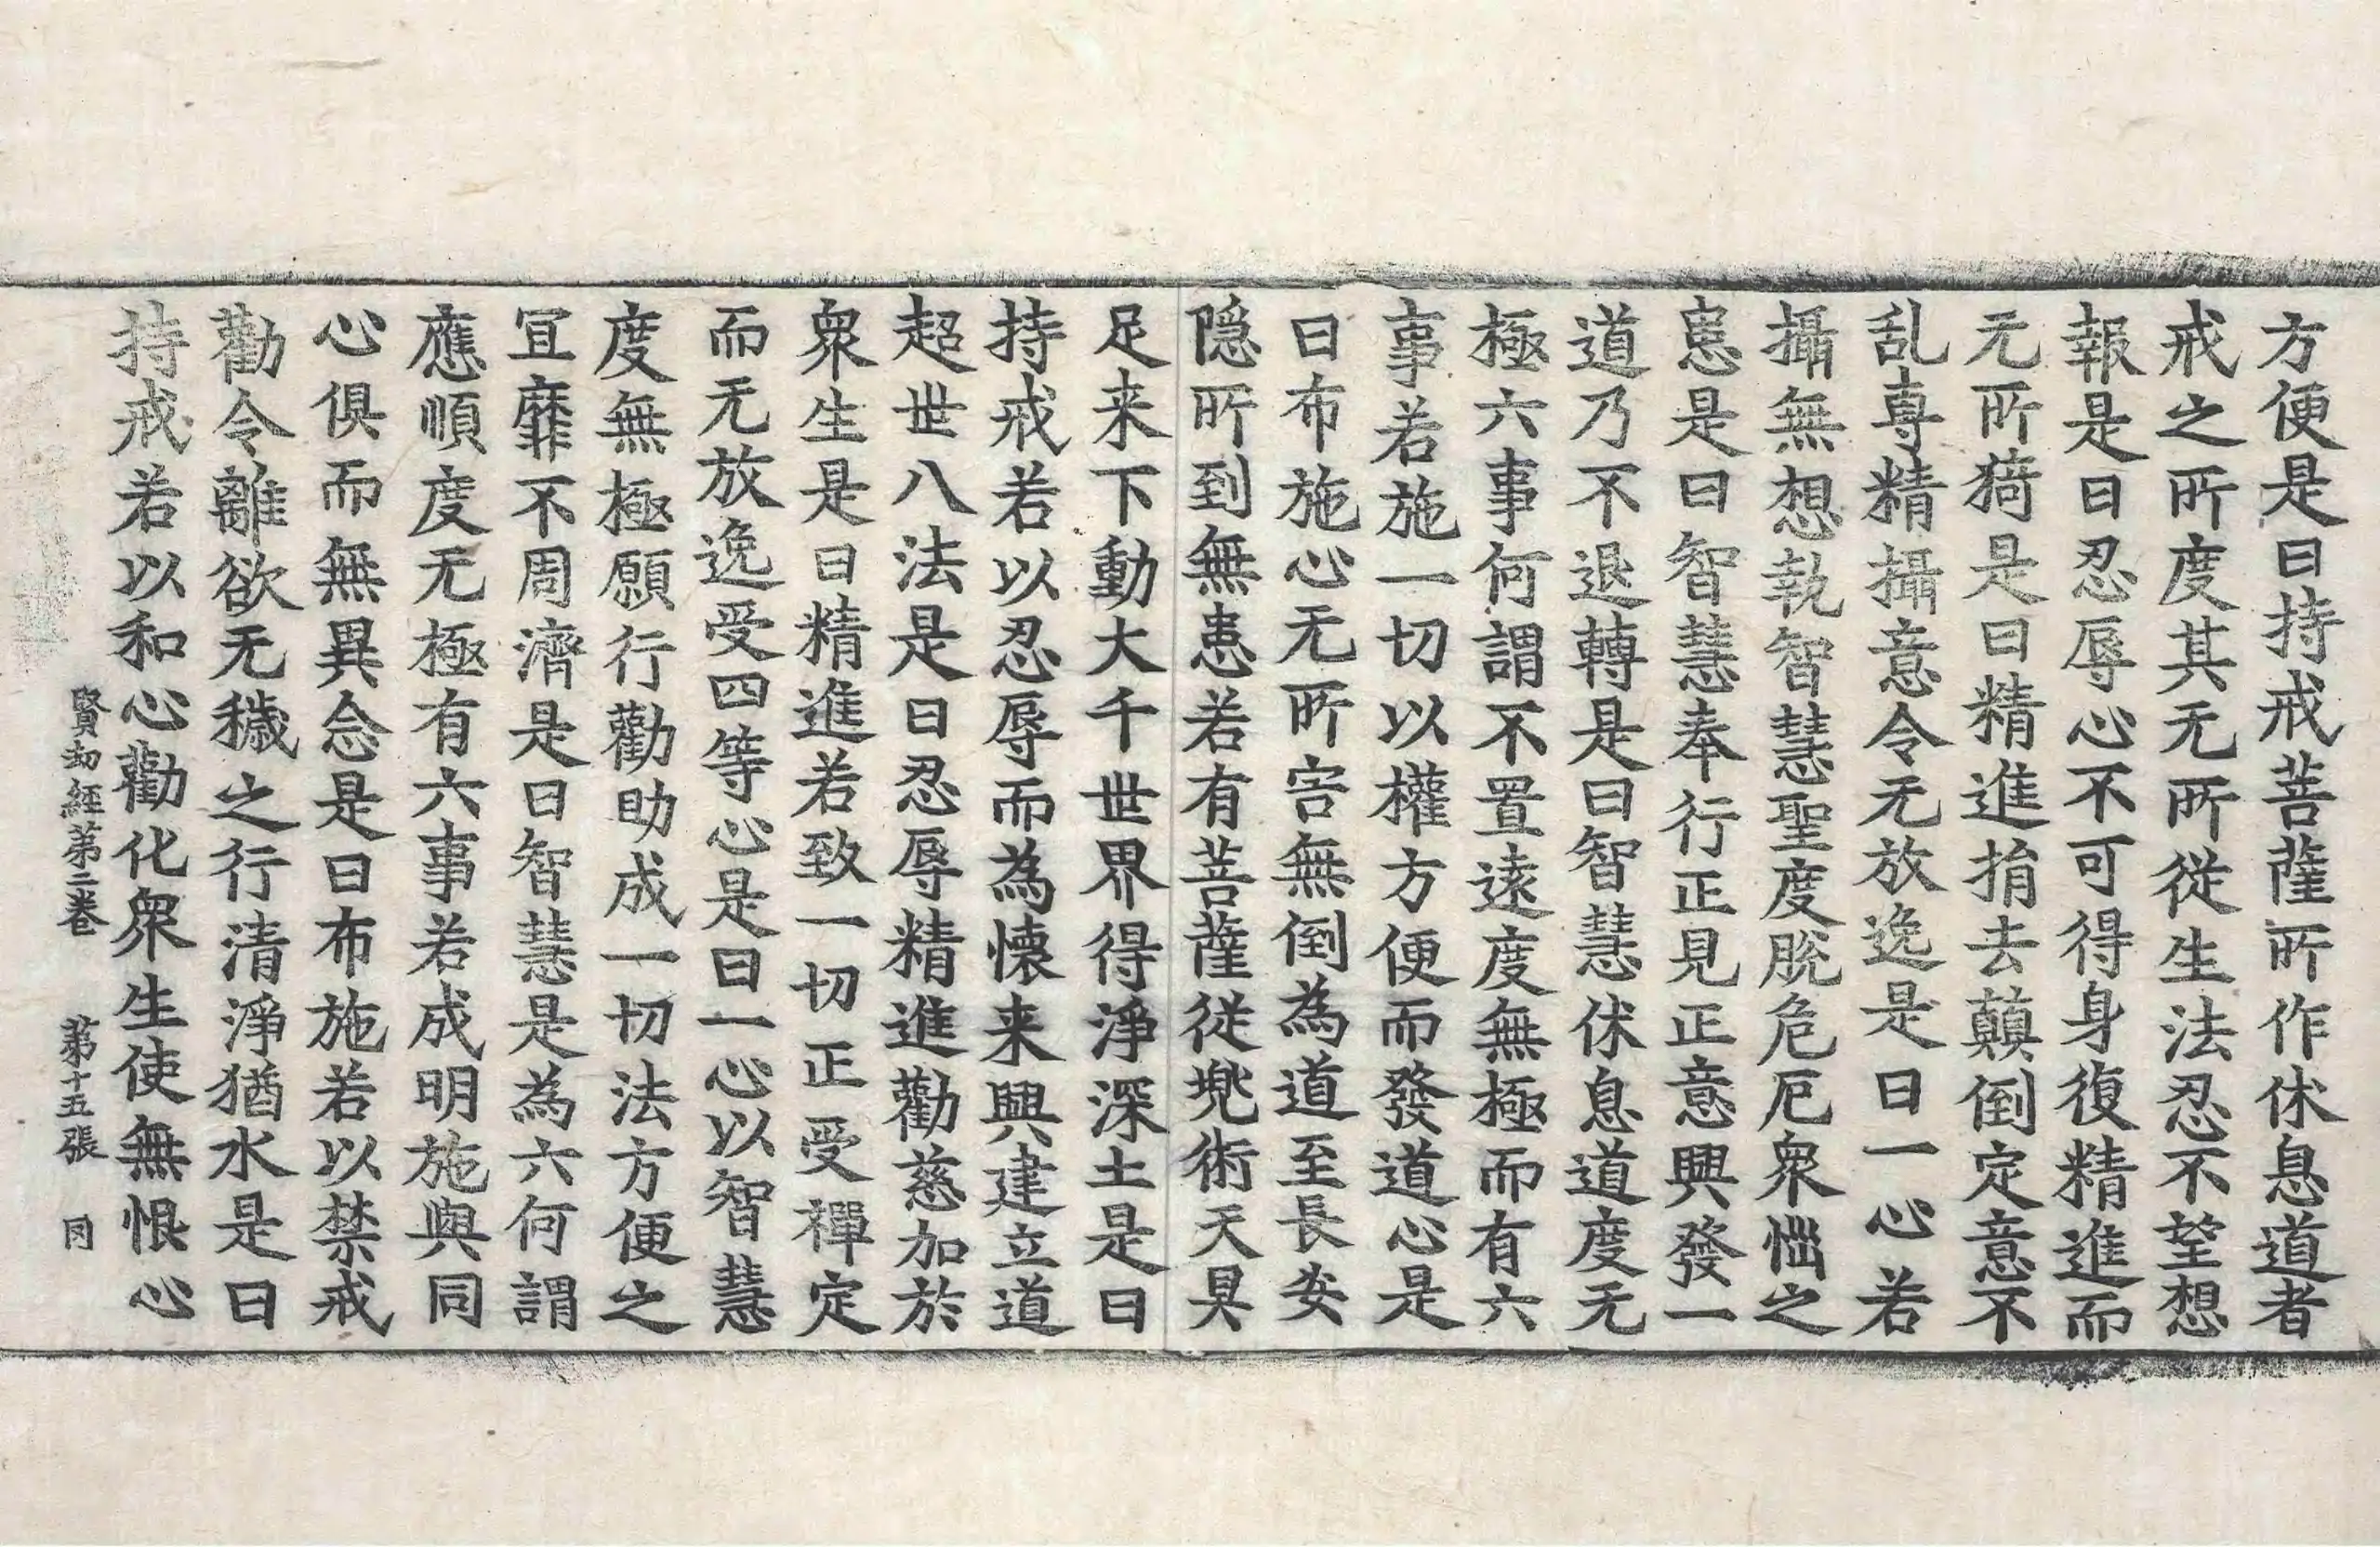 方便是曰持戒菩薩所作休息道者
戒之所度其无所從生法忍不望想
報是曰忍辱心不可得身復精進而
无所猗是曰精進捐去顛倒定意不
乱專精攝意令无放逸是曰一心若
攝無想執智慧聖度脫危厄衆惱之
患是曰智慧奉行正見正意興發一
道乃不退轉是曰智慧休息道度无
極六事何謂不置遠度無極而有六
事若施一切以權方便而發道心是
曰布施心无所害無倒為道至長安
隱所到無患若有菩薩從兠術天具
足来下動大千世界得淨深土是曰
持戒若以忍辱而為懐来興建立道
超世八法是曰忍辱精進勸慈加於
衆生是曰精進若致一切正受禪定
而无放逸受四等心是曰一心以智慧
度無極願行勸助成一切法方便之
宜靡不周濟是曰智慧是為六何謂
應順度无極有六事若成明施與同
心俱而無異念是曰布施若以禁戒
勸令離欲无穢之行清淨猶水是曰
持戒若以和心勸化衆生使無恨心
賢劫經第二卷 第十五張 同